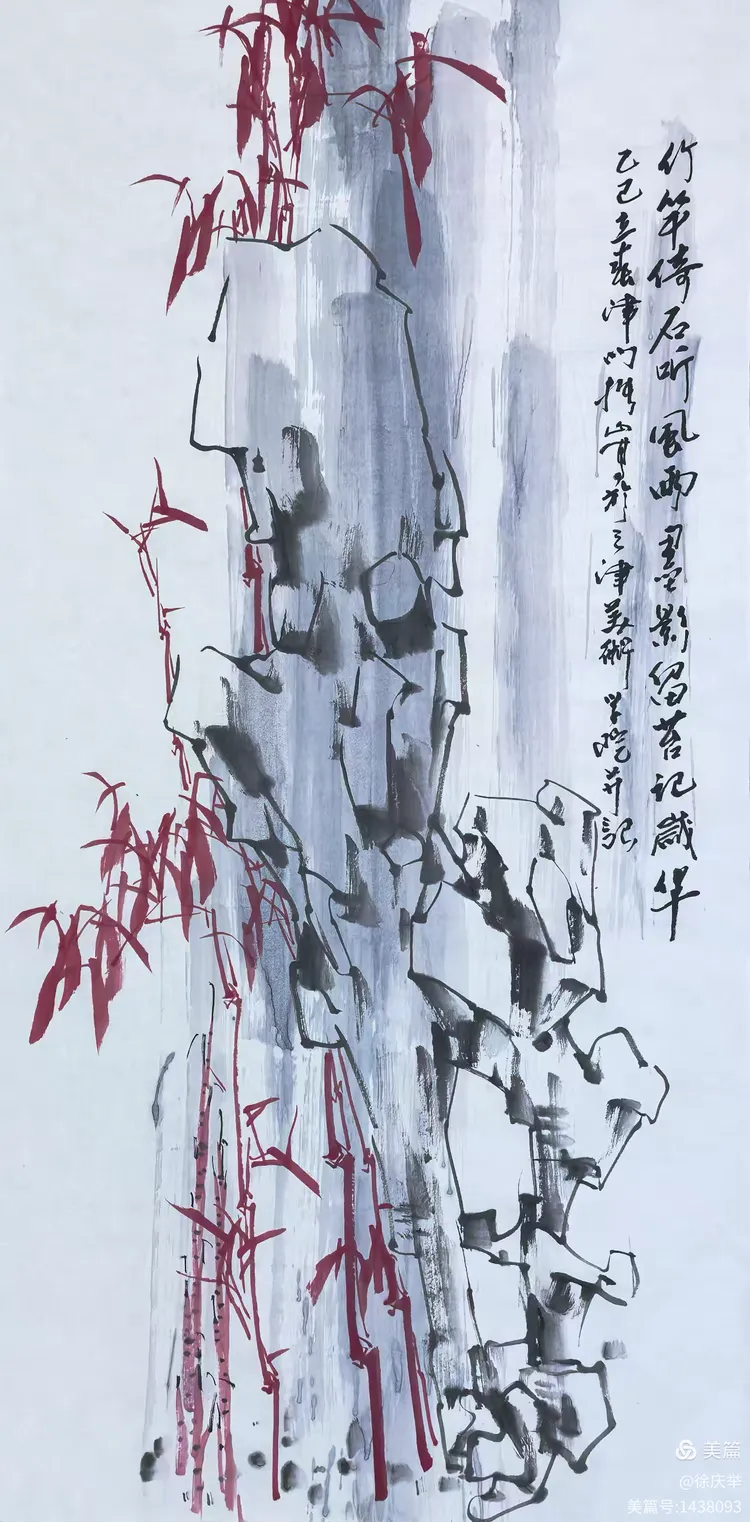 竹竿倚石听風雨墨影留苔记歲华
乙巳立春津门於天津美術学院并记
美篇
@徐庆举
美篇号:1438093